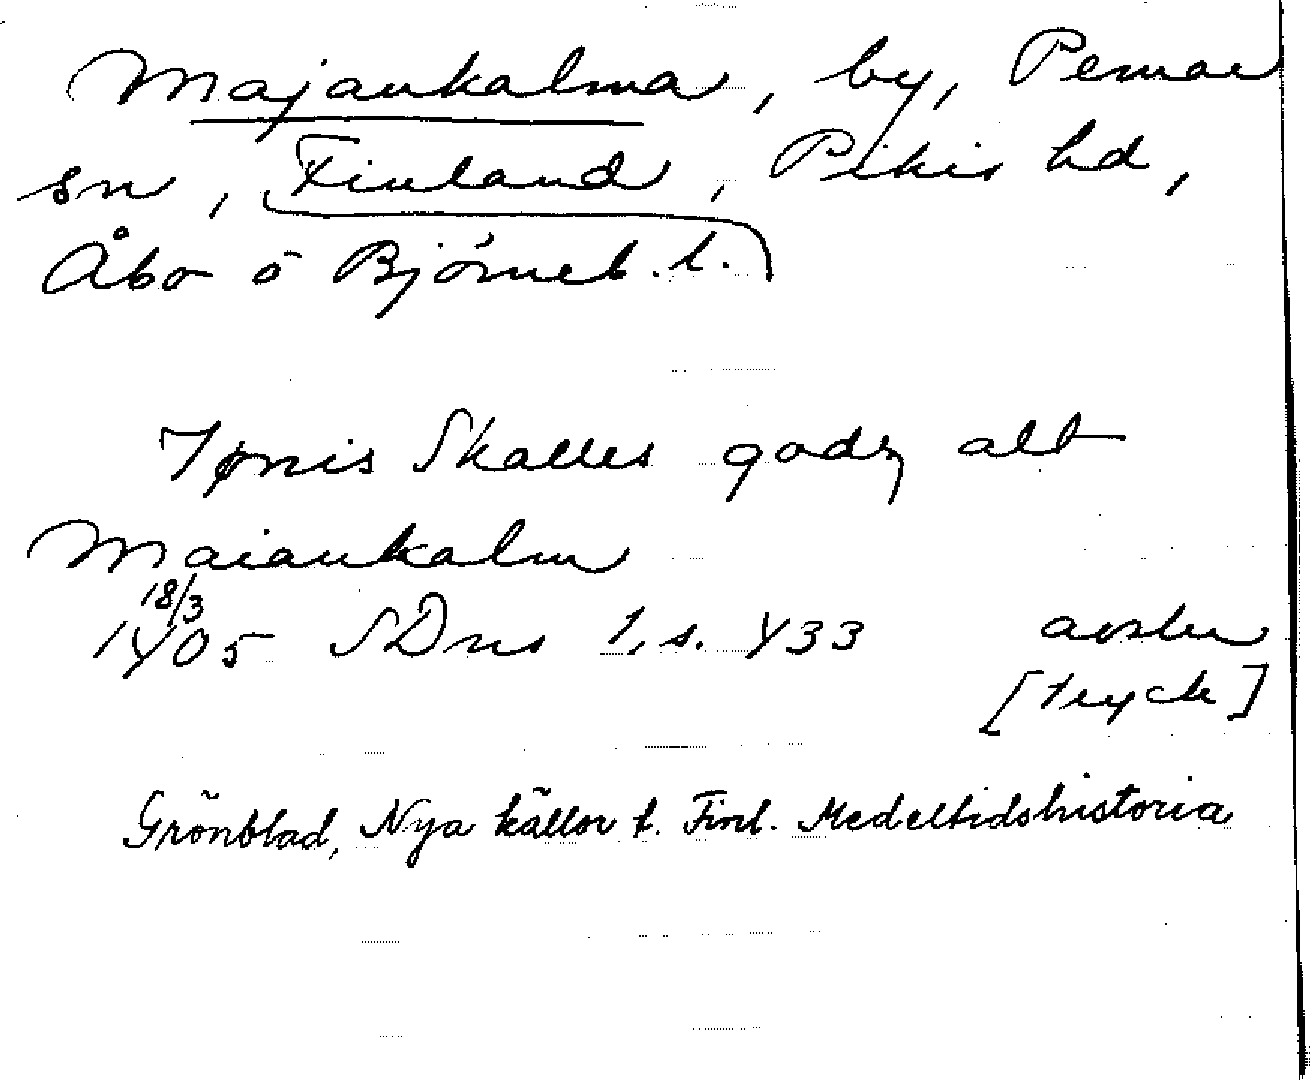 Majankalma, by, Pemar
sn, Finland, Pikis hd,
Åbo o Björneb. l.
Jønis Skalles godz alt
Maiankalm
18/3
1405 SDns 1, s. 433 avskr
[tryck]
Grönblad, Nya källor t. Finl. Medeltidshistoria